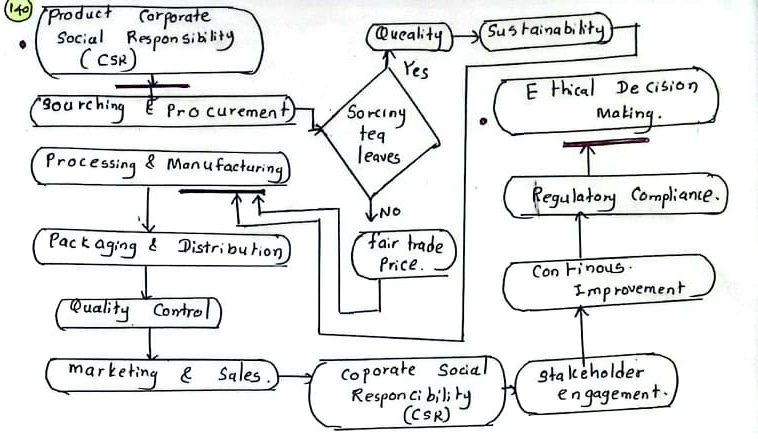 140
Product Corporate
Social Responsibility
(CSR)
Sourching & Procurement
Sorciny
tea
leaves
Yes
Queality
Sustainability
NO
fair trade
Price.
Processing & Manufacturing
Packaging & Distribution
Quality Control
marketing & Sales.
Coporate Social
Responcibility
(CSR)
Stakeholder
engagement.
Continous.
Improvement
Regulatory Compliance.
Ethical Decision
Making.